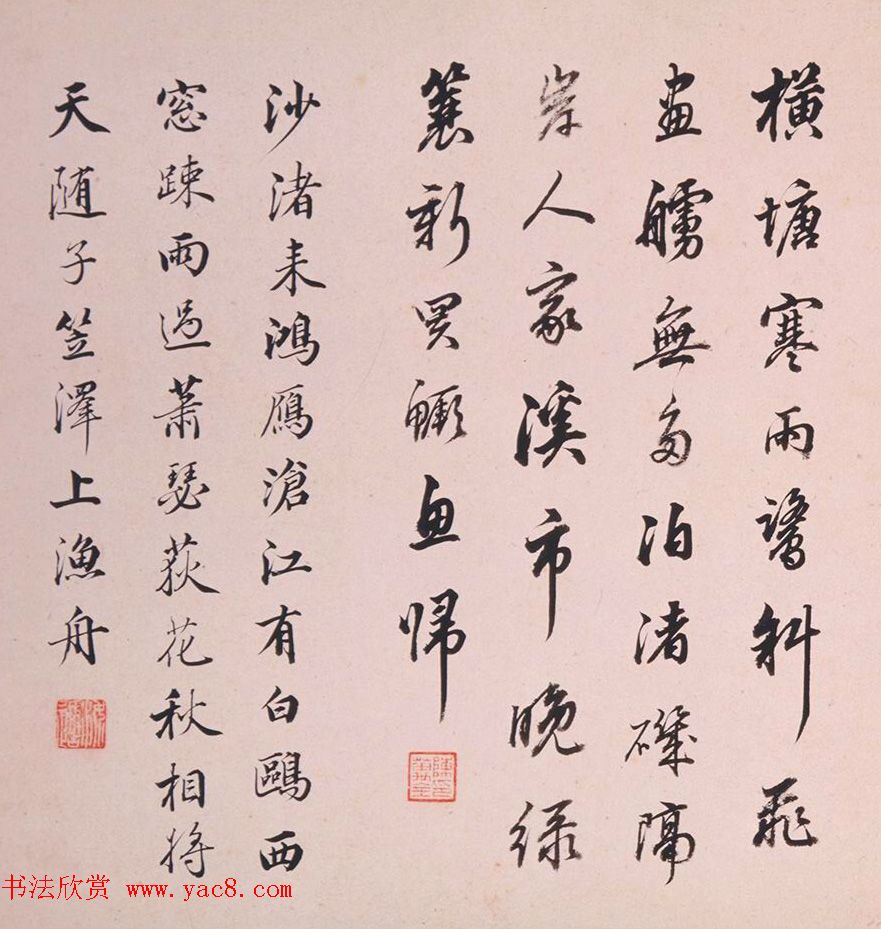 橫塘寒雨鷺斜飛
畫艣無多泊渚磯隔
岸人家溪市晚綠
蓑新買鱖魚歸
沙渚来鴻鴈滄江有白鷗西
窓踈雨過蕭瑟荻花秋相将
天随子笠澤上漁舟
书法欣赏 www.yac8.com